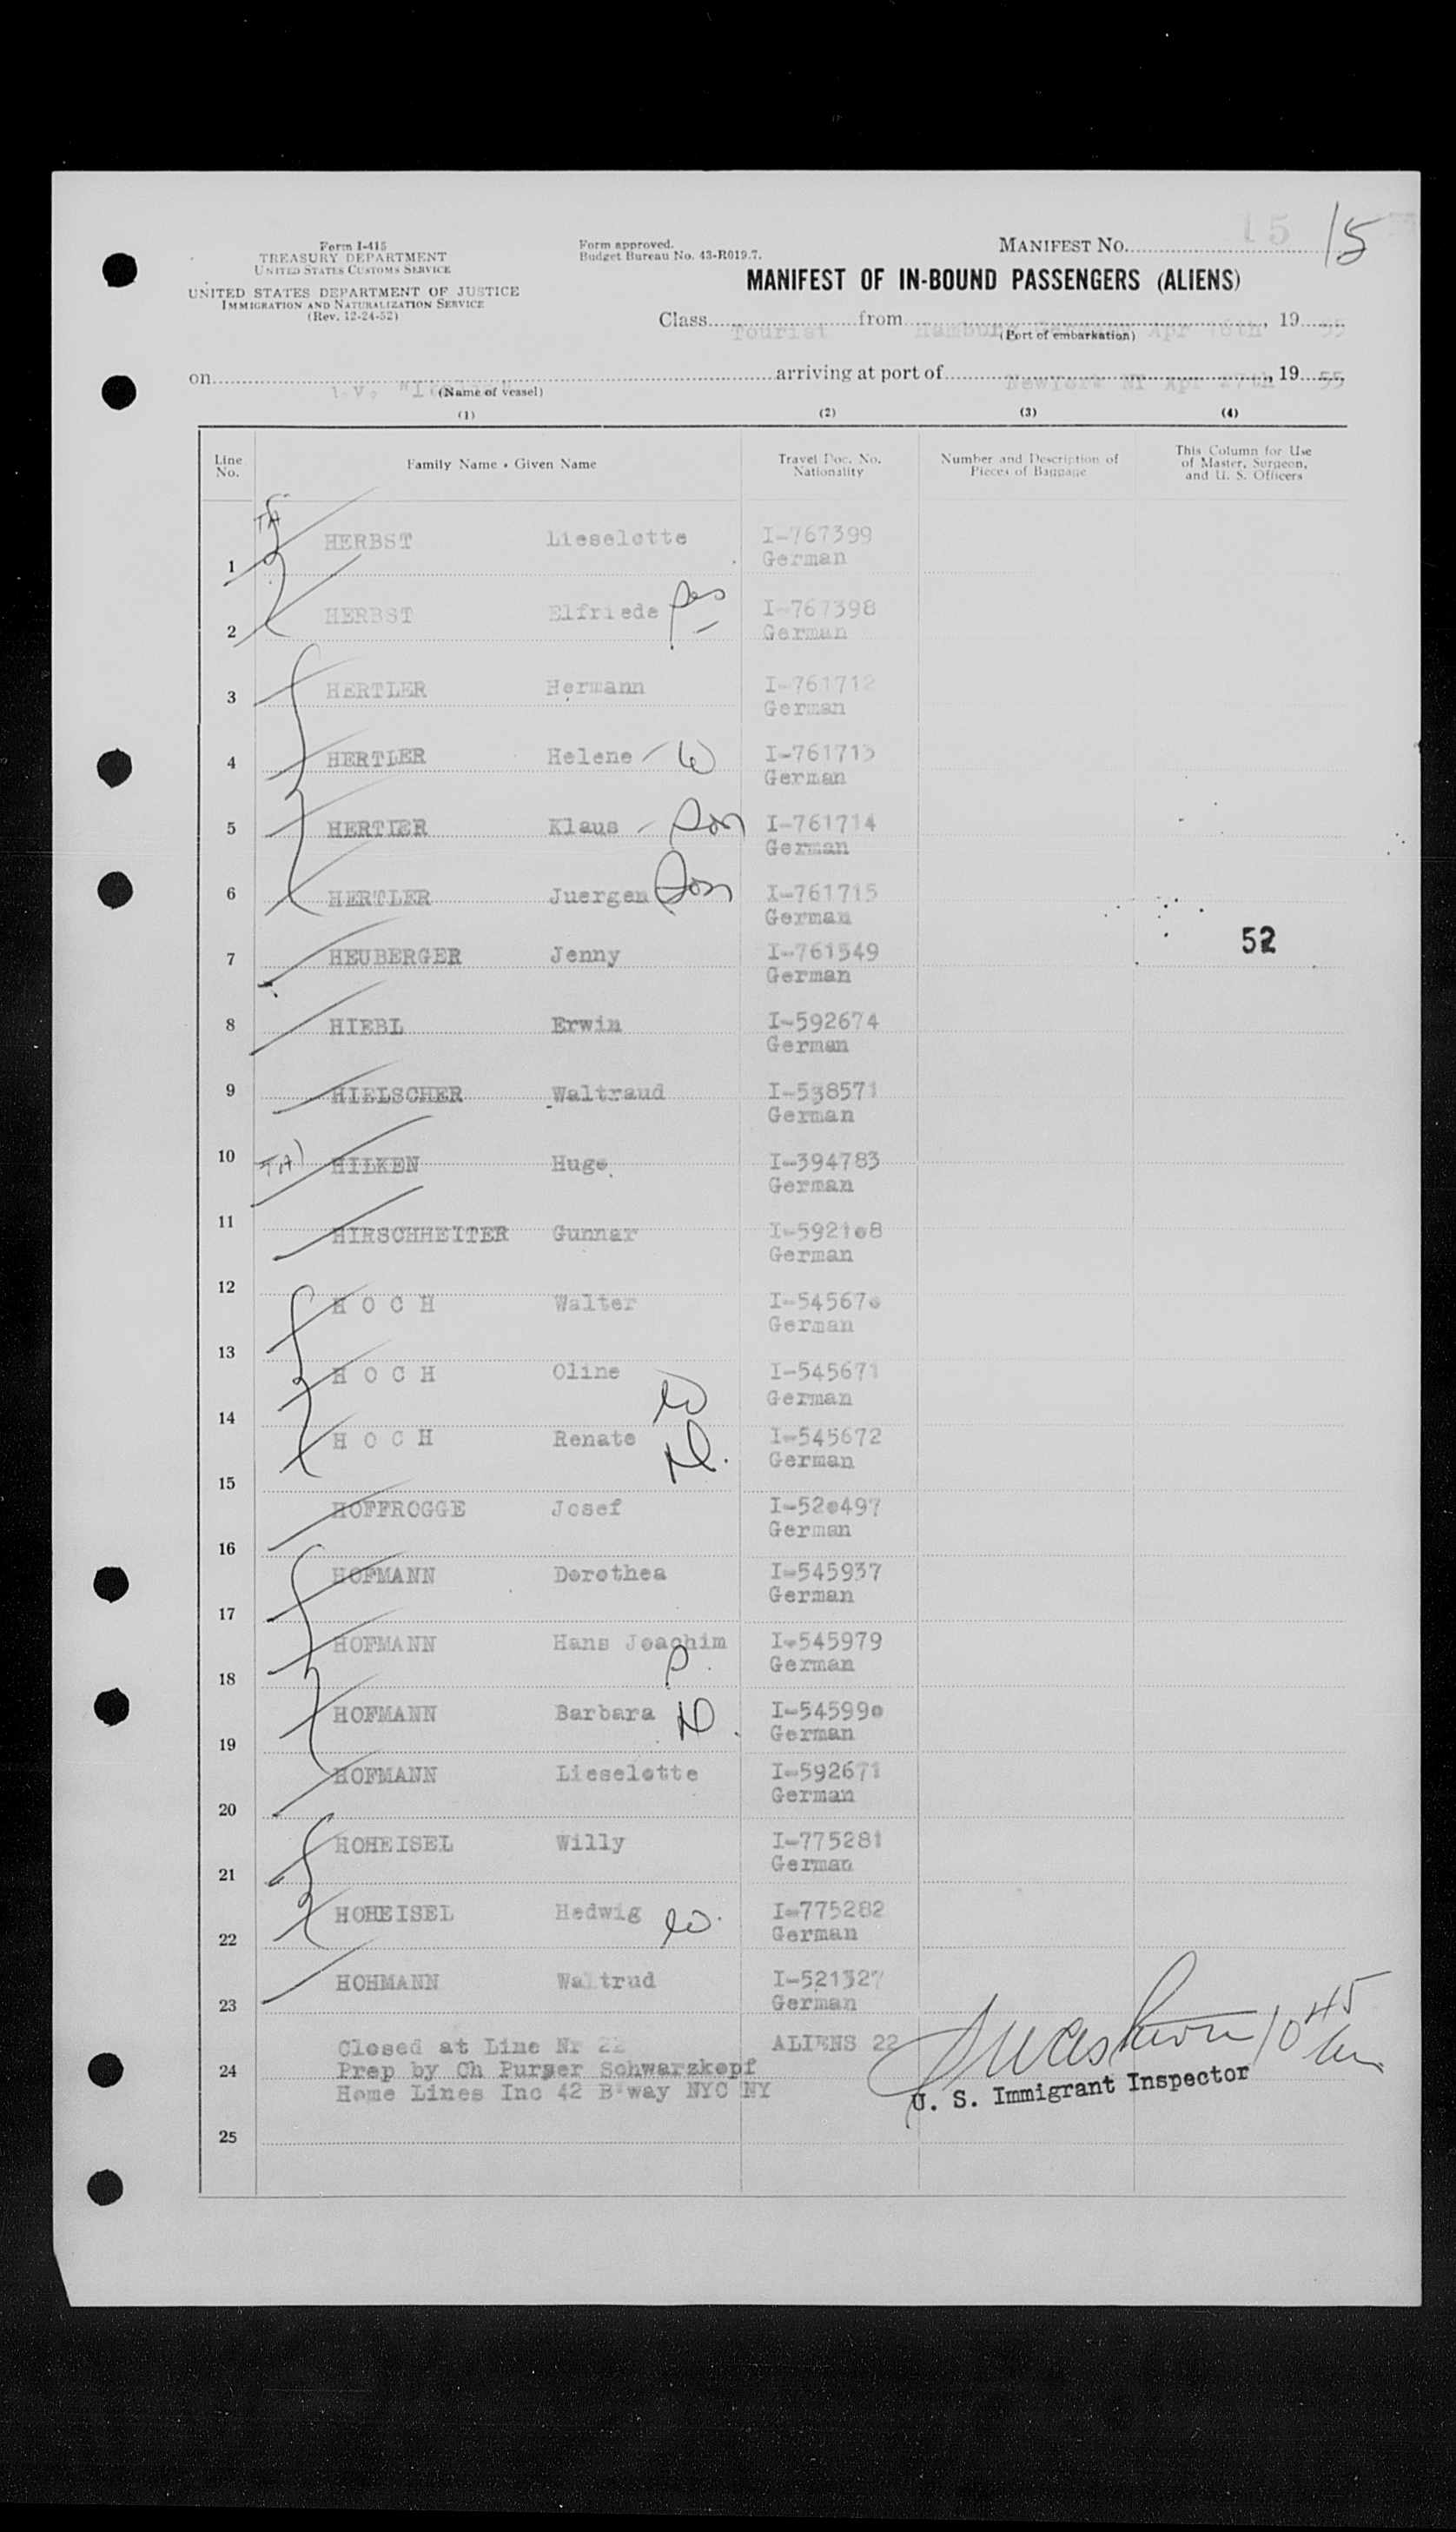 15 15
Form I-415
TREASURY DEPARTMENT
UNITED STATES CUSTOMS SERVICE
UNITED STATES DEPARTMENT OF JUSTICE
IMMIGRATION AND NATURALIZATION SERVICE
(Rev. 12-24-52)
Form approved.
Budget Bureau No. 43-R019.7.
MANIFEST NO.
MANIFEST OF IN-BOUND PASSENGERS (ALIENS)
Class Tourist from Hamburg Germany Apr 16th, 19 55
(Port of embarkation)
on (Name of vessel) arriving at port of NewYork NY Apr 27th, 19 55
(1) (2) (3) (4)
Line No. Family Name • Given Name Travel Doc. No. Nationality Number and Description of Pieces of Baggage This Column for Use of Master, Surgeon, and U. S. Officers
TA
1 HERBST Lieselotte I-767399
German
2 HERBST Elfriede I-767398
German
3 HERTLER Hermann I-761712
German
4 HERTLER Helene W I-761713
German
5 HERTLER Klaus Son I-761714
German
6 HERTLER Juergen Son I-761715
German
7 HEUBERGER Jenny I-761549 52
German
8 HIEBL Erwin I-592674
German
9 HIELSCHER Waltraud I-538571
German
10 TA HILKEN Hugo I-394783
German
11 HIRSCHHEITER Gunnar I-592108
German
12 H O C H Walter I-545670
German
13 H O C H Oline W I-545671
German
14 H O C H Renate D. I-545672
German
15 HOFFROGGE Josef I-520497
German
16 HOFMANN Dorothea I-545937
German
17 HOFMANN Hans Joachim S. I-545979
German
18 HOFMANN Barbara D. I-545990
German
19 HOFMANN Lieselotte I-592671
German
20 HOHEISEL Willy I-775281
German
21 HOHEISEL Hedwig W. I-775282
German
22 HOHMANN Waltrud I-521327
German
23
Closed at Line Nr 22 ALIENS 22
24 Prep by Ch Purser Schwarzkopf
Home Lines Inc 42 B'way NYC NY
10 45
U. S. Immigrant Inspector
25